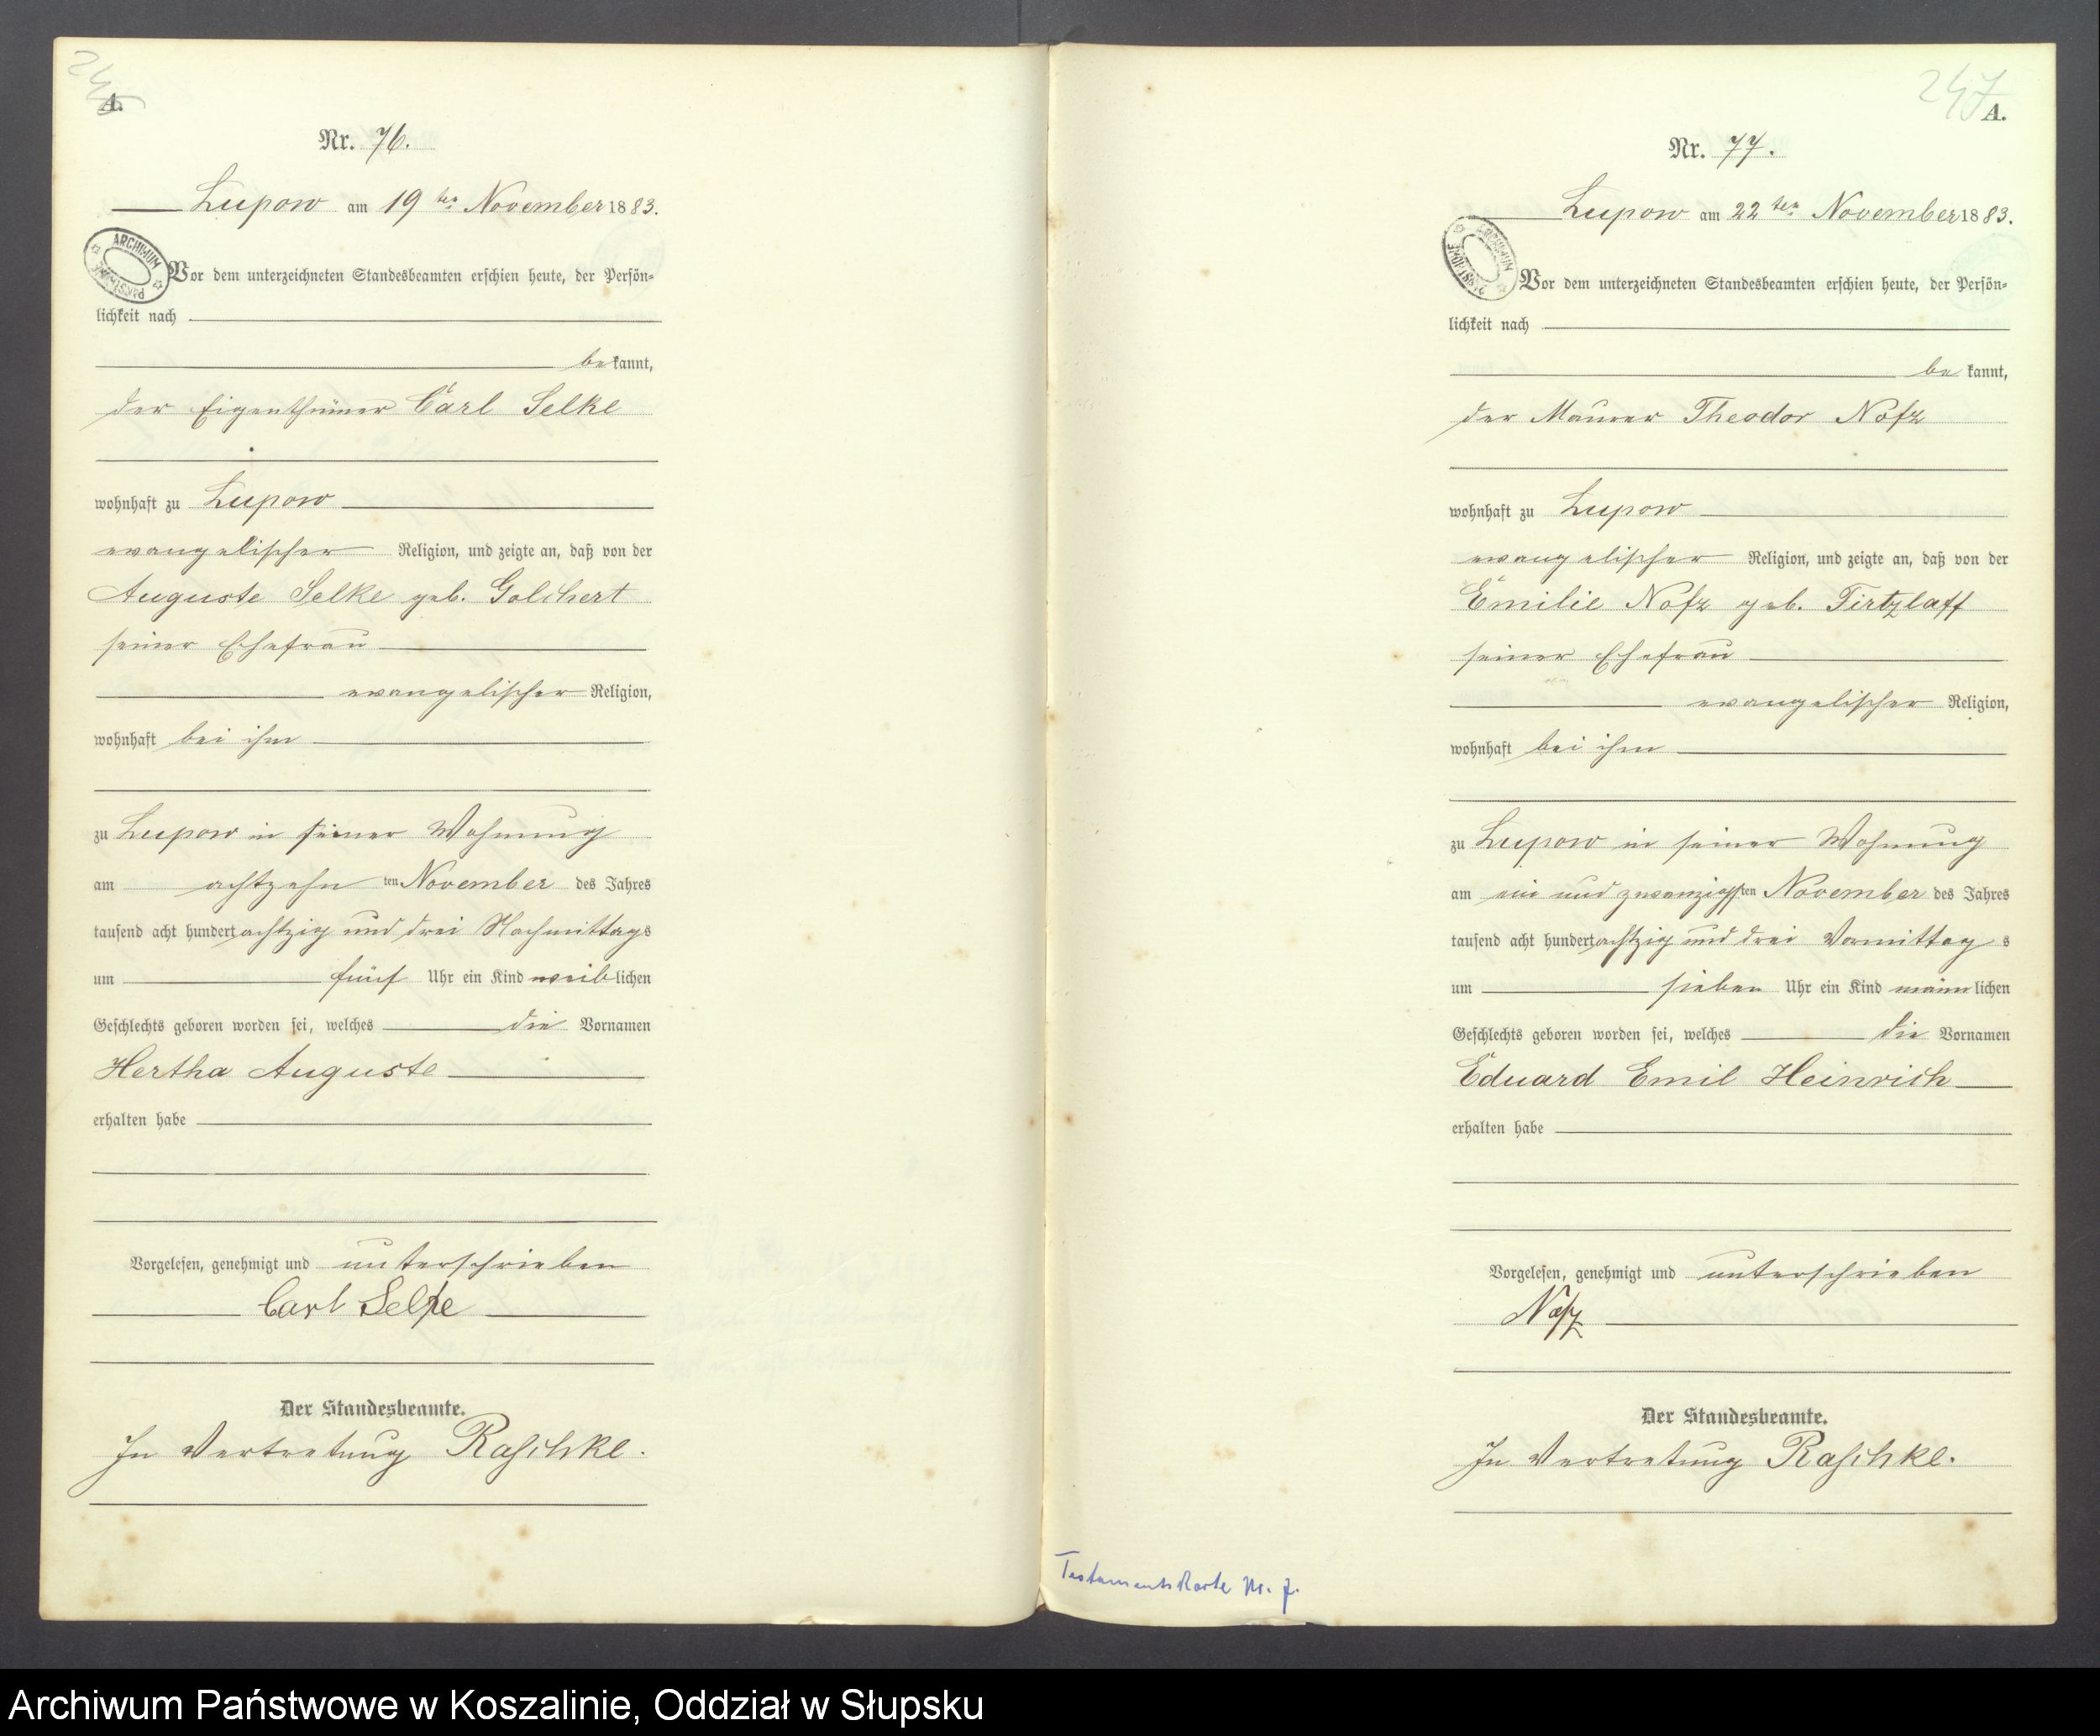 A.
Nr. 76.
Lupow am 19 ten November 1883.
ARCHIWUM PAŃSTWOWE
Vor dem unterzeichneten Standesbeamten erschien heute, der Persön-
lichkeit nach
bekannt,
der Eigenthümer Carl Selke
wohnhaft zu Lupow
evangelischer Religion, und zeigte an, daß von der
Auguste Selke geb. Golchert
seiner Ehefrau
evangelischer Religion,
wohnhaft bei ihm
zu Lupow in seiner Wohnung
am achtzehn ten November des Jahres
tausend acht hundert achtzig und drei Nachmittags
um fünf Uhr ein Kind weiblichen
Geschlechts geboren worden sei, welches die Vornamen
Hertha Auguste
erhalten habe
Vorgelesen, genehmigt und unterschrieben
Carl Selke
Der Standesbeamte.
In Vertretung Raschke.
247
A.
Nr. 77.
Lupow am 22 ten November 1883.
ARCHIWUM PAŃSTWOWE
Vor dem unterzeichneten Standesbeamten erschien heute, der Persön-
lichkeit nach
be kannt,
der Maurer Theodor Nofz
wohnhaft zu Lupow
evangelischer Religion, und zeigte an, daß von der
Emilie Nofz geb. Tirtzlaff
seiner Ehefrau
evangelischer Religion,
wohnhaft bei ihm
zu Lupow in seiner Wohnung
am ein und zwanzigsten November des Jahres
tausend acht hundert achtzig und drei Vormittag s
um sieben Uhr ein Kind männlichen
Geschlechts geboren worden sei, welches die Vornamen
Eduard Emil Heinrich
erhalten habe
Vorgelesen, genehmigt und unterschrieben
Nofz
Der Standesbeamte.
In Vertretung Raschke.
Testamentskarte
Archiwum Państwowe w Koszalinie, Oddział w Słupsku